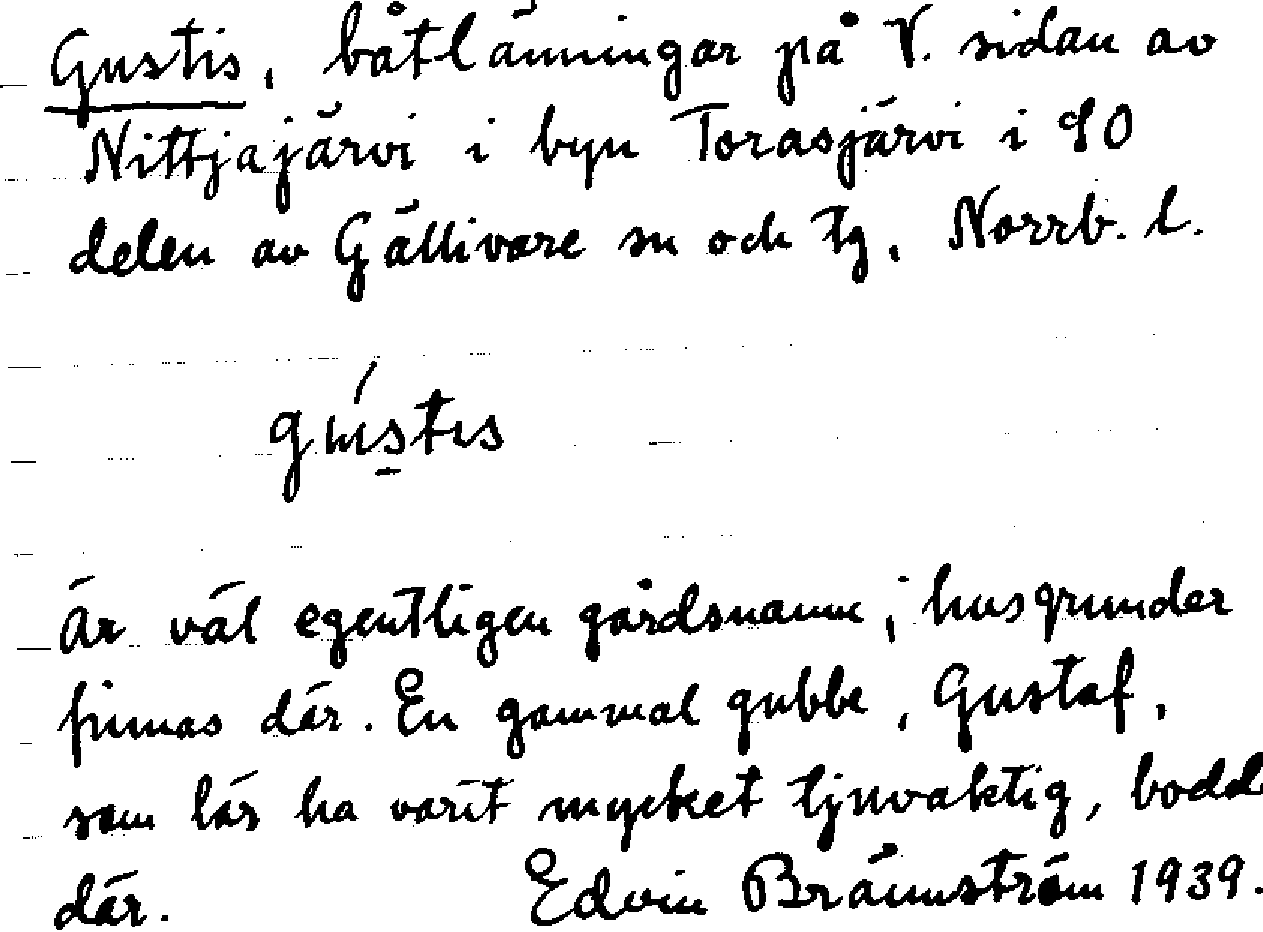 Gustis, båtlänningar på V. sidan av
Nittjajärvi i byn Torasjärvi i SO
delen av Gällivare sn och tg, Norrb. l.
gústis
Är väl egentligen gårdsnamn; husgrunder
finnas där. En gammal gubbe, Gustaf,
som lär ha varit mycket tjuvaktig, bodd
där. Edvin Brännström 1939.